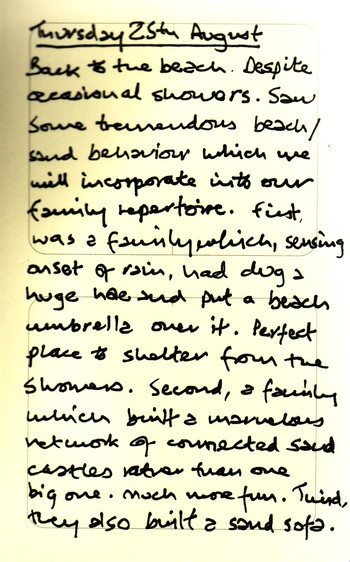 Thursday 25th August
Back to the beach. Despite
occasional showers. Saw
some tremendous beach/
sand behaviour which we
will incorporate into our
family repertoire. First,
was a family, which, sensing
onset of rain, had dug a
huge hole and put a beach
umbrella over it. Perfect
place to shelter from the
showers. Second, a family
which built a marvelous
network of connected sand
castles rather than one
big one. Much more fun. Third,
they also built a sand sofa.